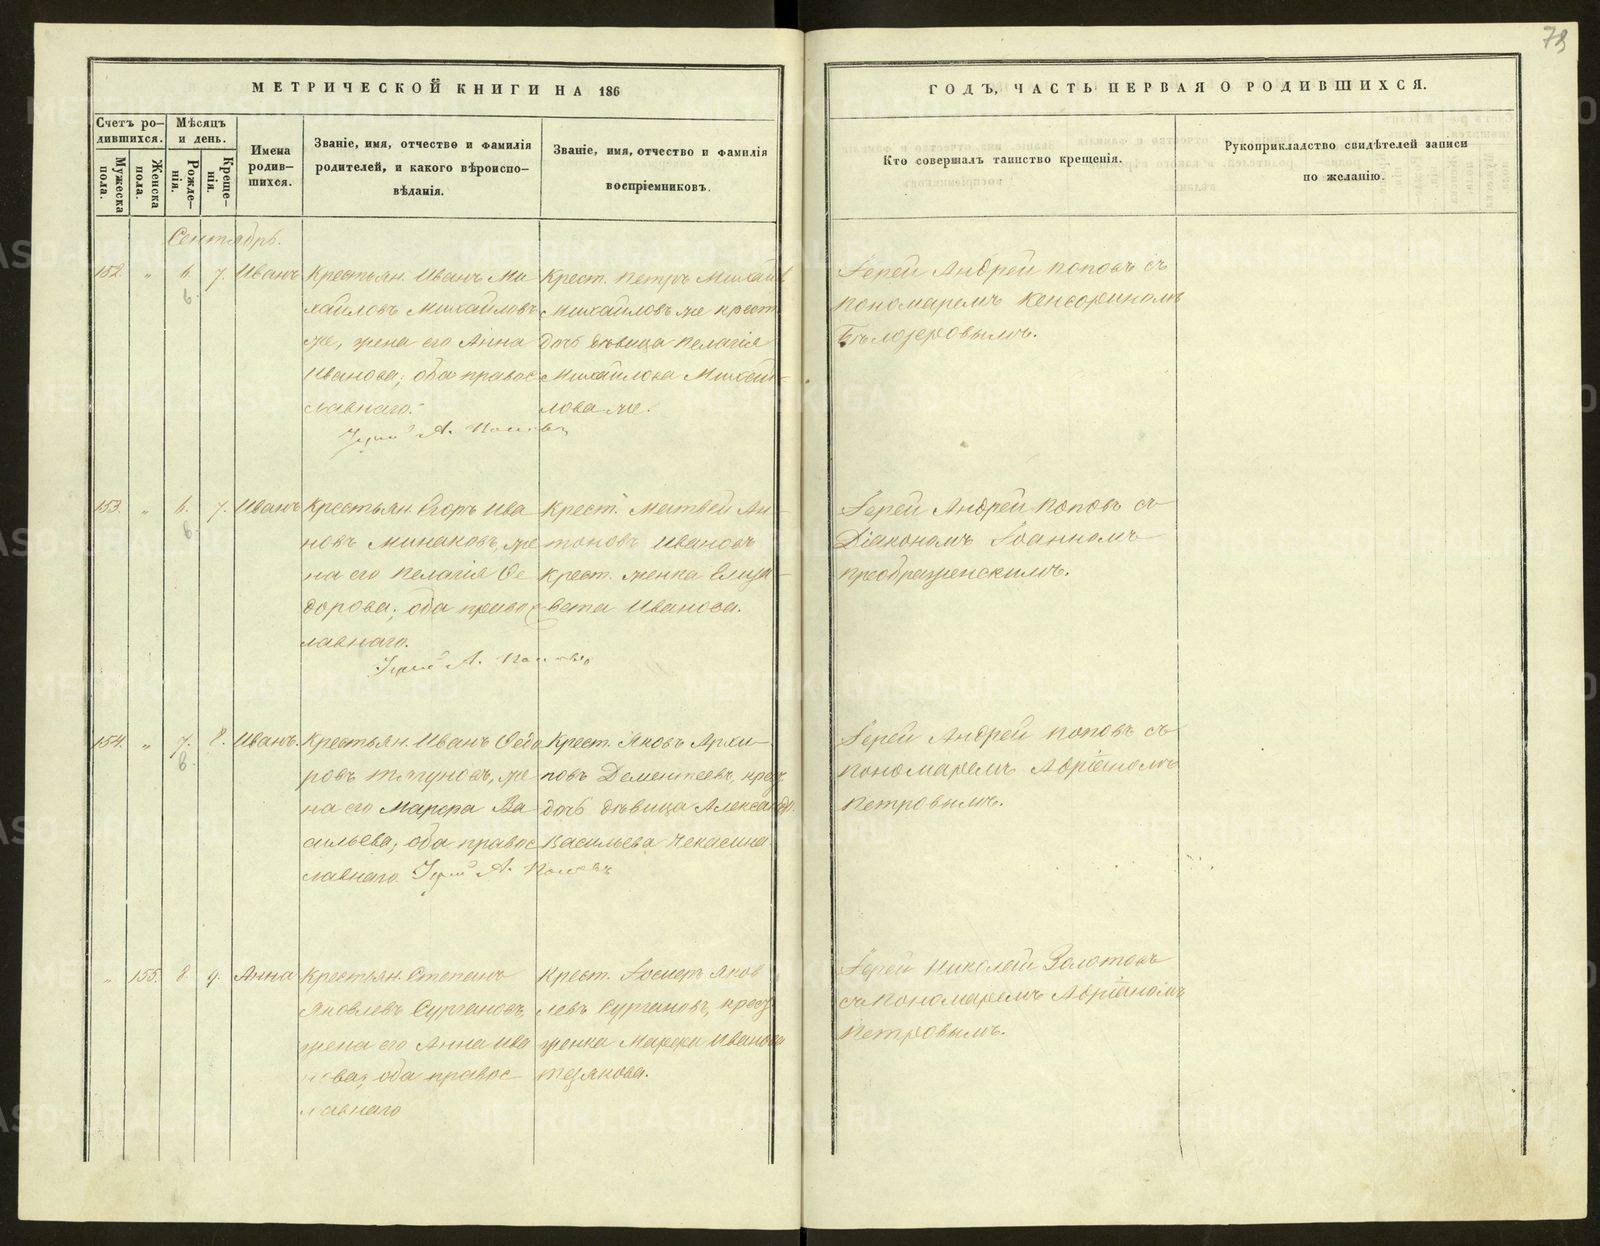 78
МЕТРИЧЕСКОЙ КНИГИ НА 186
ГОДЪ, ЧАСТЬ ПЕРВАЯ О РОДИВШИХСЯ.
Счетъ ро-
дившихся.
Мужеска
пола.
Женска
пола.
Мѣсяцъ
и день.
Рожде-
нія.
Креще-
нія.
Имена
родив-
шихся.
Званіе, имя, отчество и фамилія
родителей, и какого вѣроиспо-
вѣданія.
Званіе, имя, отчество и фамилія
воспріемниковъ.
Кто совершалъ таинство крещенія.
Рукоприкладство свидѣтелей записи
по желанію.
Сентябрь.
152 " 6. 7. Иванъ
6.
Крестьян. Иванъ Ми
хайловъ Михайловъ
же, жена его Анна
Иванова; оба правос
лавнаго.
Іерей А. Поповъ
Крест. Петръ Михайл
Михайловъ же крест.
дочь дѣвица Пелагія
Михайлова Михай-
лова же.
Іерей Андрей Поповъ съ
пономаремъ Кенсориномъ
Бѣлозеровымъ.
153. " 6. 7. Иванъ
6.
Крестьян. Егоръ Ива
новъ Минаковъ, же
на его Пелагія Ѳе
дорова; оба правос
лавнаго.
Іерей А. Поповъ
Крест. Матвей Ан-
тоновъ Ивановъ
крест. женка Елиза-
вета Иванова.
Іерей Андрей Поповъ съ
Діакономъ Іоанномъ
Преображенскимъ.
154. " 7. 8. Иванъ.
6.
Крестьян. Иванъ Ѳедо
ровъ Тягуновъ, же
на его Марѳа Ва
сильева, оба правос
лавнаго. Іерей А. Поповъ
Крест. Яковъ Архи-
повъ Дементьевъ, крест.
дочь дѣвица Александр.
Васильева Чекасина
Іерей Андрей Поповъ съ
пономаремъ Адріаномъ
Петровымъ.
" 155. 8. 9. Анна
Крестьян. Степанъ
Яковлевъ Сургановъ,
жена его Анна Ива
нова; оба правос
лавнаго
Крест. Яков
левъ Сургановъ, крест.
женка Марѳа Иванова
Іерей Николай Золотовъ
съ пономаремъ Адріаномъ
Петровымъ.
METRIKI.GASO-URAL.RU